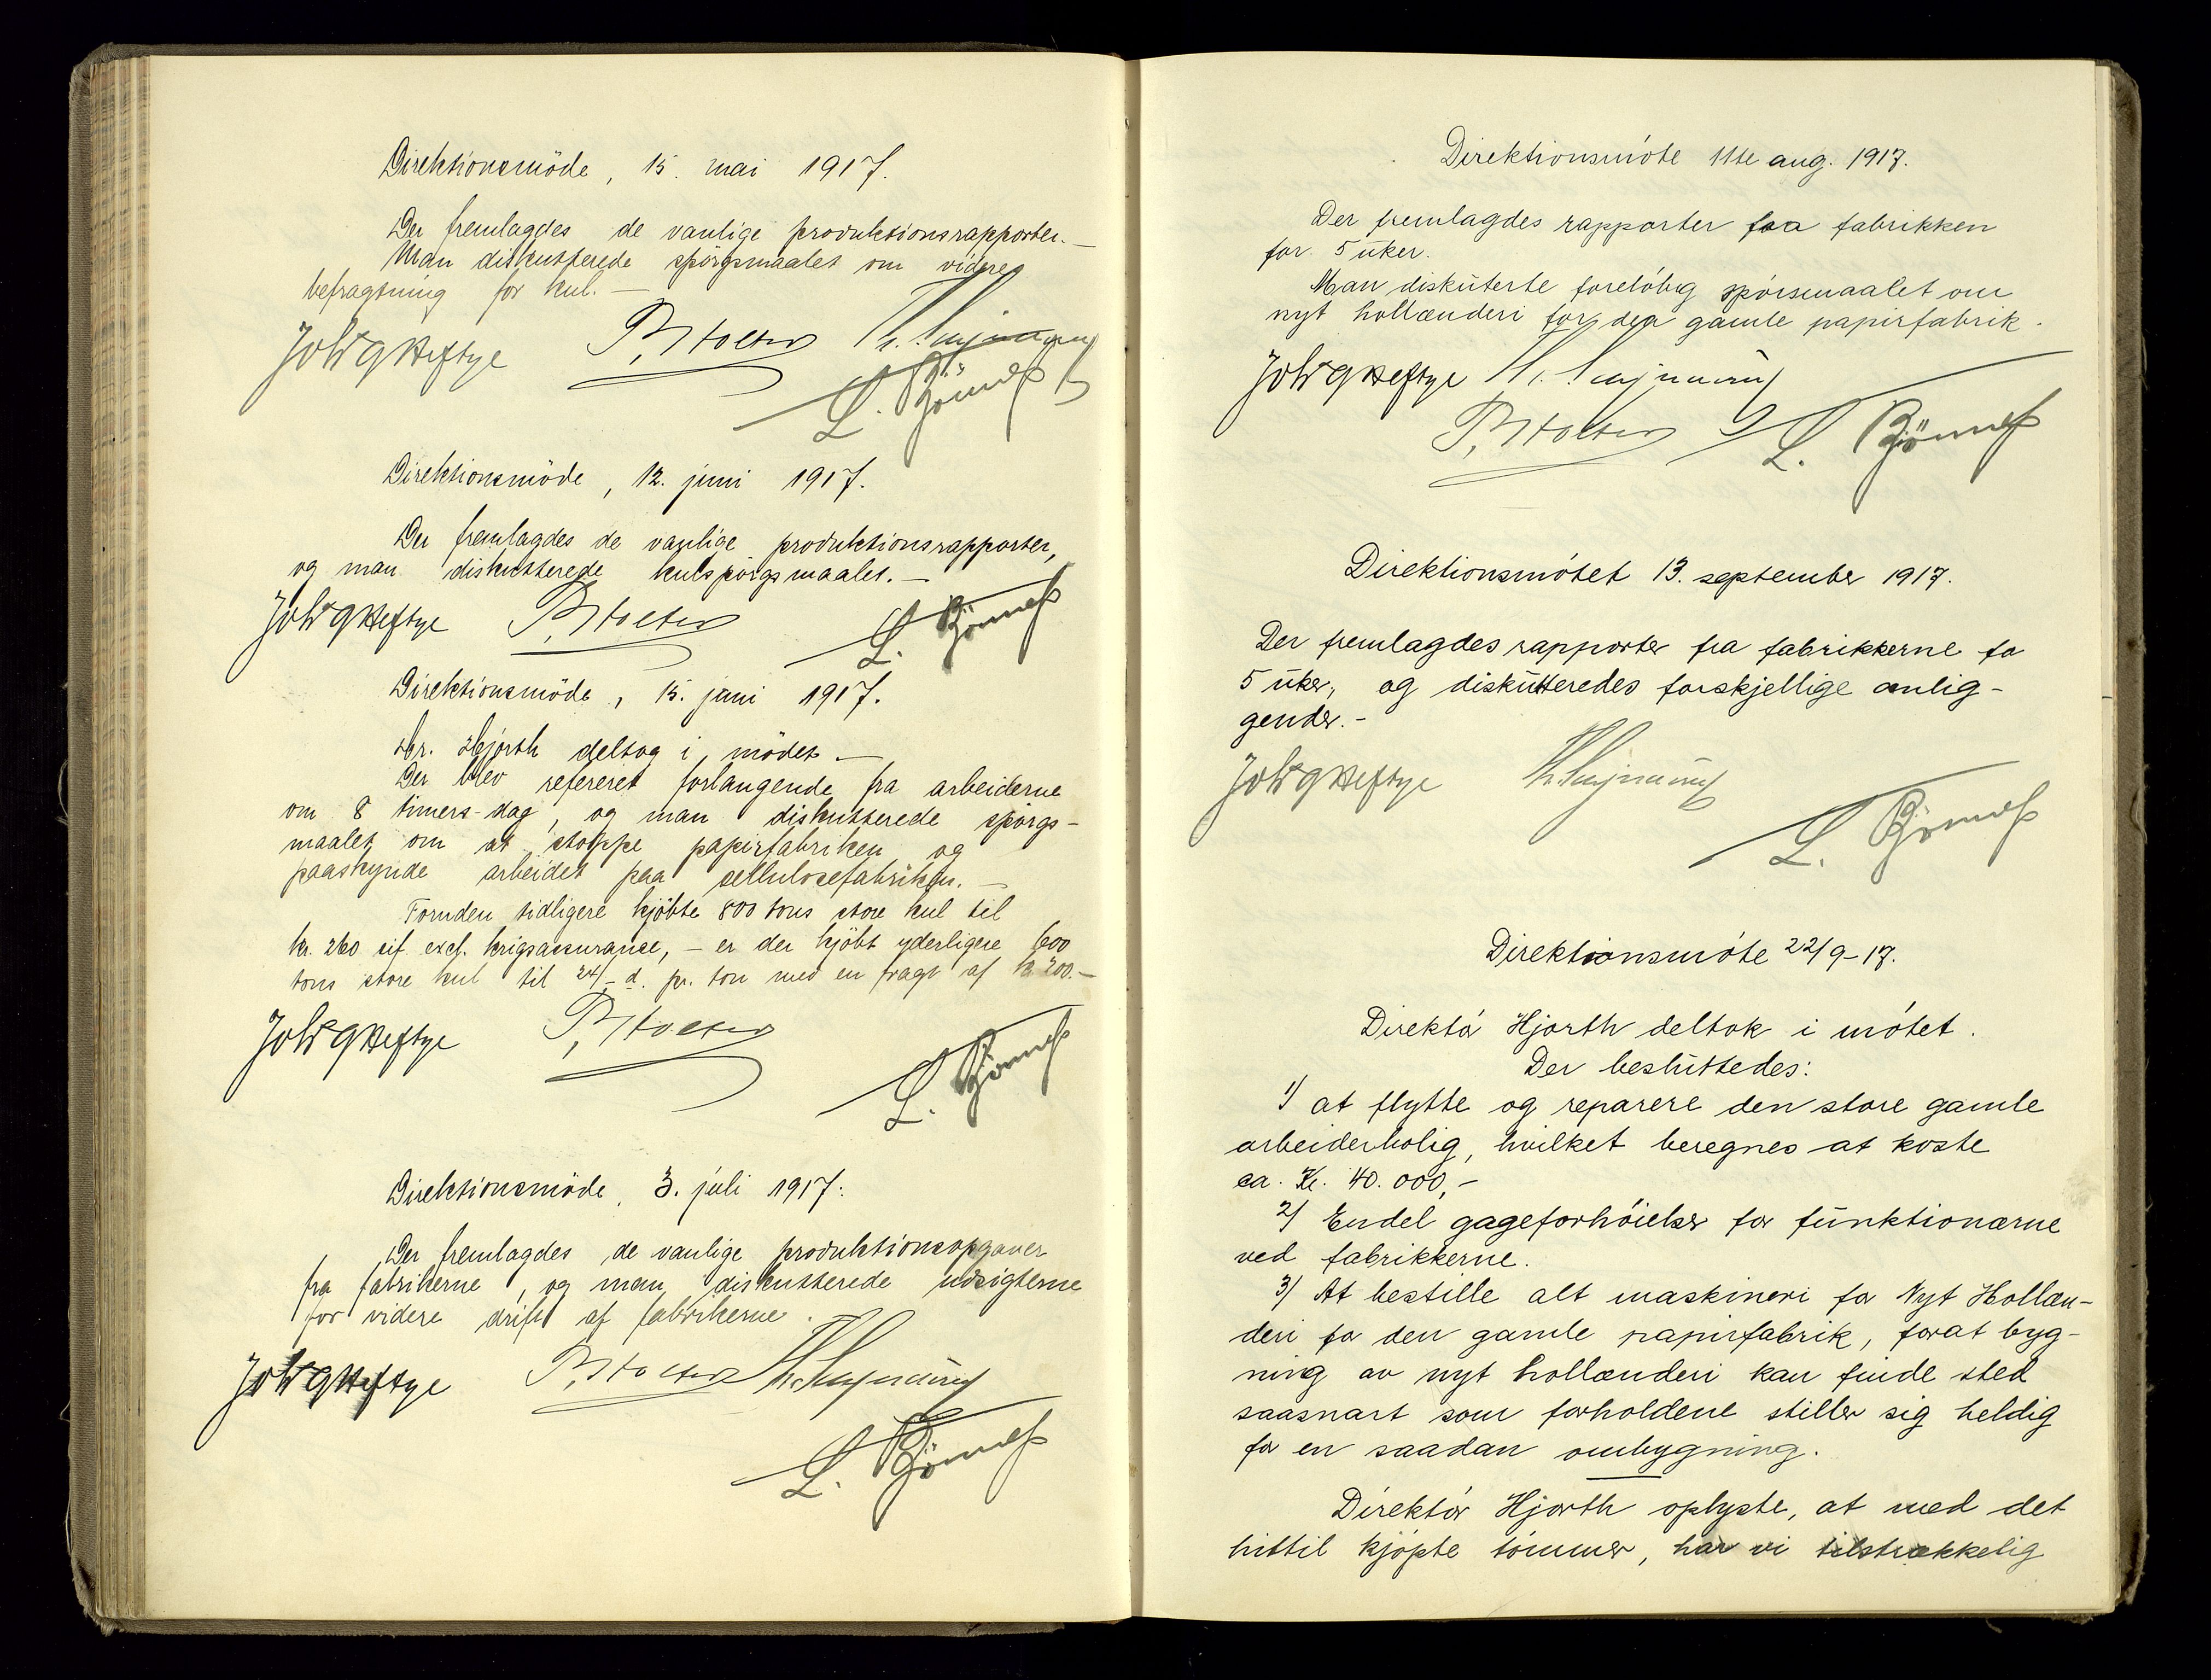 Direktionsmöde, 15. mai 1917.
Der fremlagdes de vanlige produktionsrapporter. —
Man diskutterede spörgsmaalet om videre
befragtning for kul. —
Joh G Heftye P. Holter
L. Björness
Direktionsmöde, 12. juni 1917.
Der fremlagdes de vanlige produktionsrapporter,
og man diskutterede kulspörgsmaalet. —
Joh G Heftye P. Holter
L. Björness
Direktionsmöde, 15. juni 1917.
Hr. Hjorth deltog i mödet —
Der blev refereret forlangende fra arbeiderne
om 8 timers-dag, og man diskutterede spörgs-
maalet om at stoppe papirfabriken og
paaskynde arbeidet paa cellulosefabriken. —
Foruden tidligere kjöbte 800 tons store kul til
kr. 260 cif. excl. krigsassurance, — er der kjöbt yderligere 600
tons store kul til 24/- d. pr. ton med en fragt af kr 200.—
Joh G Heftye P. Holter
L. Björness
Direktionsmöde, 3. juli 1917.
Der fremlagdes de vanlige produktionsopgaver
fra fabrikerne, og man diskutterede udsigterne
for videre drift af fabrikerne.
Joh G Heftye P. Holter
L. Björness
Direktionsmóte 11te aug. 1917.
Der fremlagdes rapporter fra fabrikken
for 5 uker.
Man diskuterte foreløbig spórsmaalet om
nyt hollænderi for den gamle papirfabrik.
Joh G Heftye
P. Holter L. Björness
Direktionsmótet 13. september 1917.
Der fremlagdes rapporter fra fabrikkerne for
5 uker, og diskutteredes forskjellige anlig-
gender. -
Joh G Heftye
L. Björness
Direktionsmóte 22/9-17.
Direktór Hjorth deltok i mótet.
Der besluttedes:
1) at flytte og reparere den store gamle
arbeiderbolig, hvilket beregnes at koste
ca. Kr. 40.000,-
2) Endel gageforhóielser for funktionærne
ved fabrikkerne.
3) At bestille alt maskineri for Nyt Hollæn-
deri for den gamle papirfabrik, forat byg-
ning av nyt hollænderi kan finde sted
saasnart som forholdene stiller sig heldig
for en saadan ombygning.
Direktór Hjorth oplyste, at med det
hittil kjópte tómmer, har vi tilstrækkelig